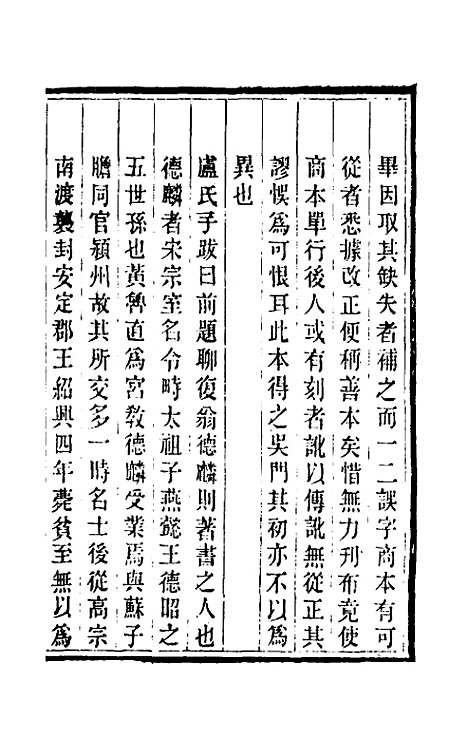 畢因取其缺失者補之而一二誤字商本有可
從者悉據改正便稱善本矣惜無力刋布竟使
商本單行後人或有刻者訛以傳訛無從正其
謬悞爲可恨耳此本得之吳門其初亦不以爲
異也
盧氏手跋曰前題聊復翁德麟則著書之人也
德麟者宋宗室名令畤太祖子燕懿王德昭之
五世孫也黃魯直爲宮敎德麟受業焉與蘇子
瞻同官潁州故其所交多一時名士後從高宗
南渡襲封安定郡王紹興四年薨貧至無以爲